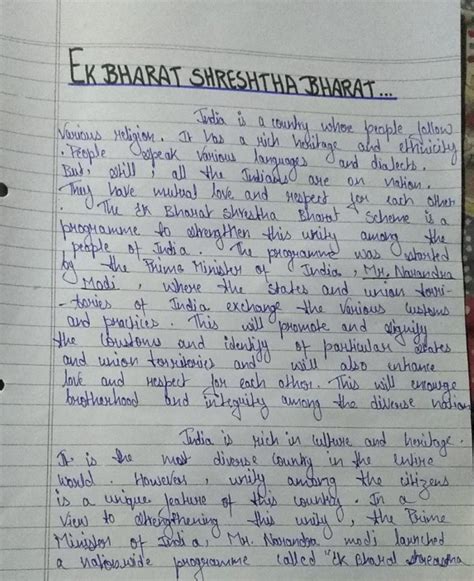 EK BHARAT SHRESHTHA BHARAT...
India is a country where people follow
Various religion. It has a rich heritage and ethnicity
. People speak various languages and dialects.
But, still, all the Indians are an nation.
They have mutual love and respect for each other
. The Ek Bharat Shrestha Bharat scheme is a
programme to strengthen this unity among the
people of India. The programme was started
by the Prime Minister of India, Mr. Narandra
Modi, where the states and union terri-
-tories of India exchange the various customs
and practices. This will promote and dignify
the coustoms and identity of particular states
and union territories and will also enhance
love and respect for each other. This will
brotherhood and integrity among the diverse nation
India is rich in culture and heritage.
It is the most diverse country in the entire
world. However, unity among the citizens
is a unique feature of this country. In a
view to strengthening this unity, the Prime
Minister of India, Mr. Narandra modi launched
a nationwide programme called "Ek Bharat